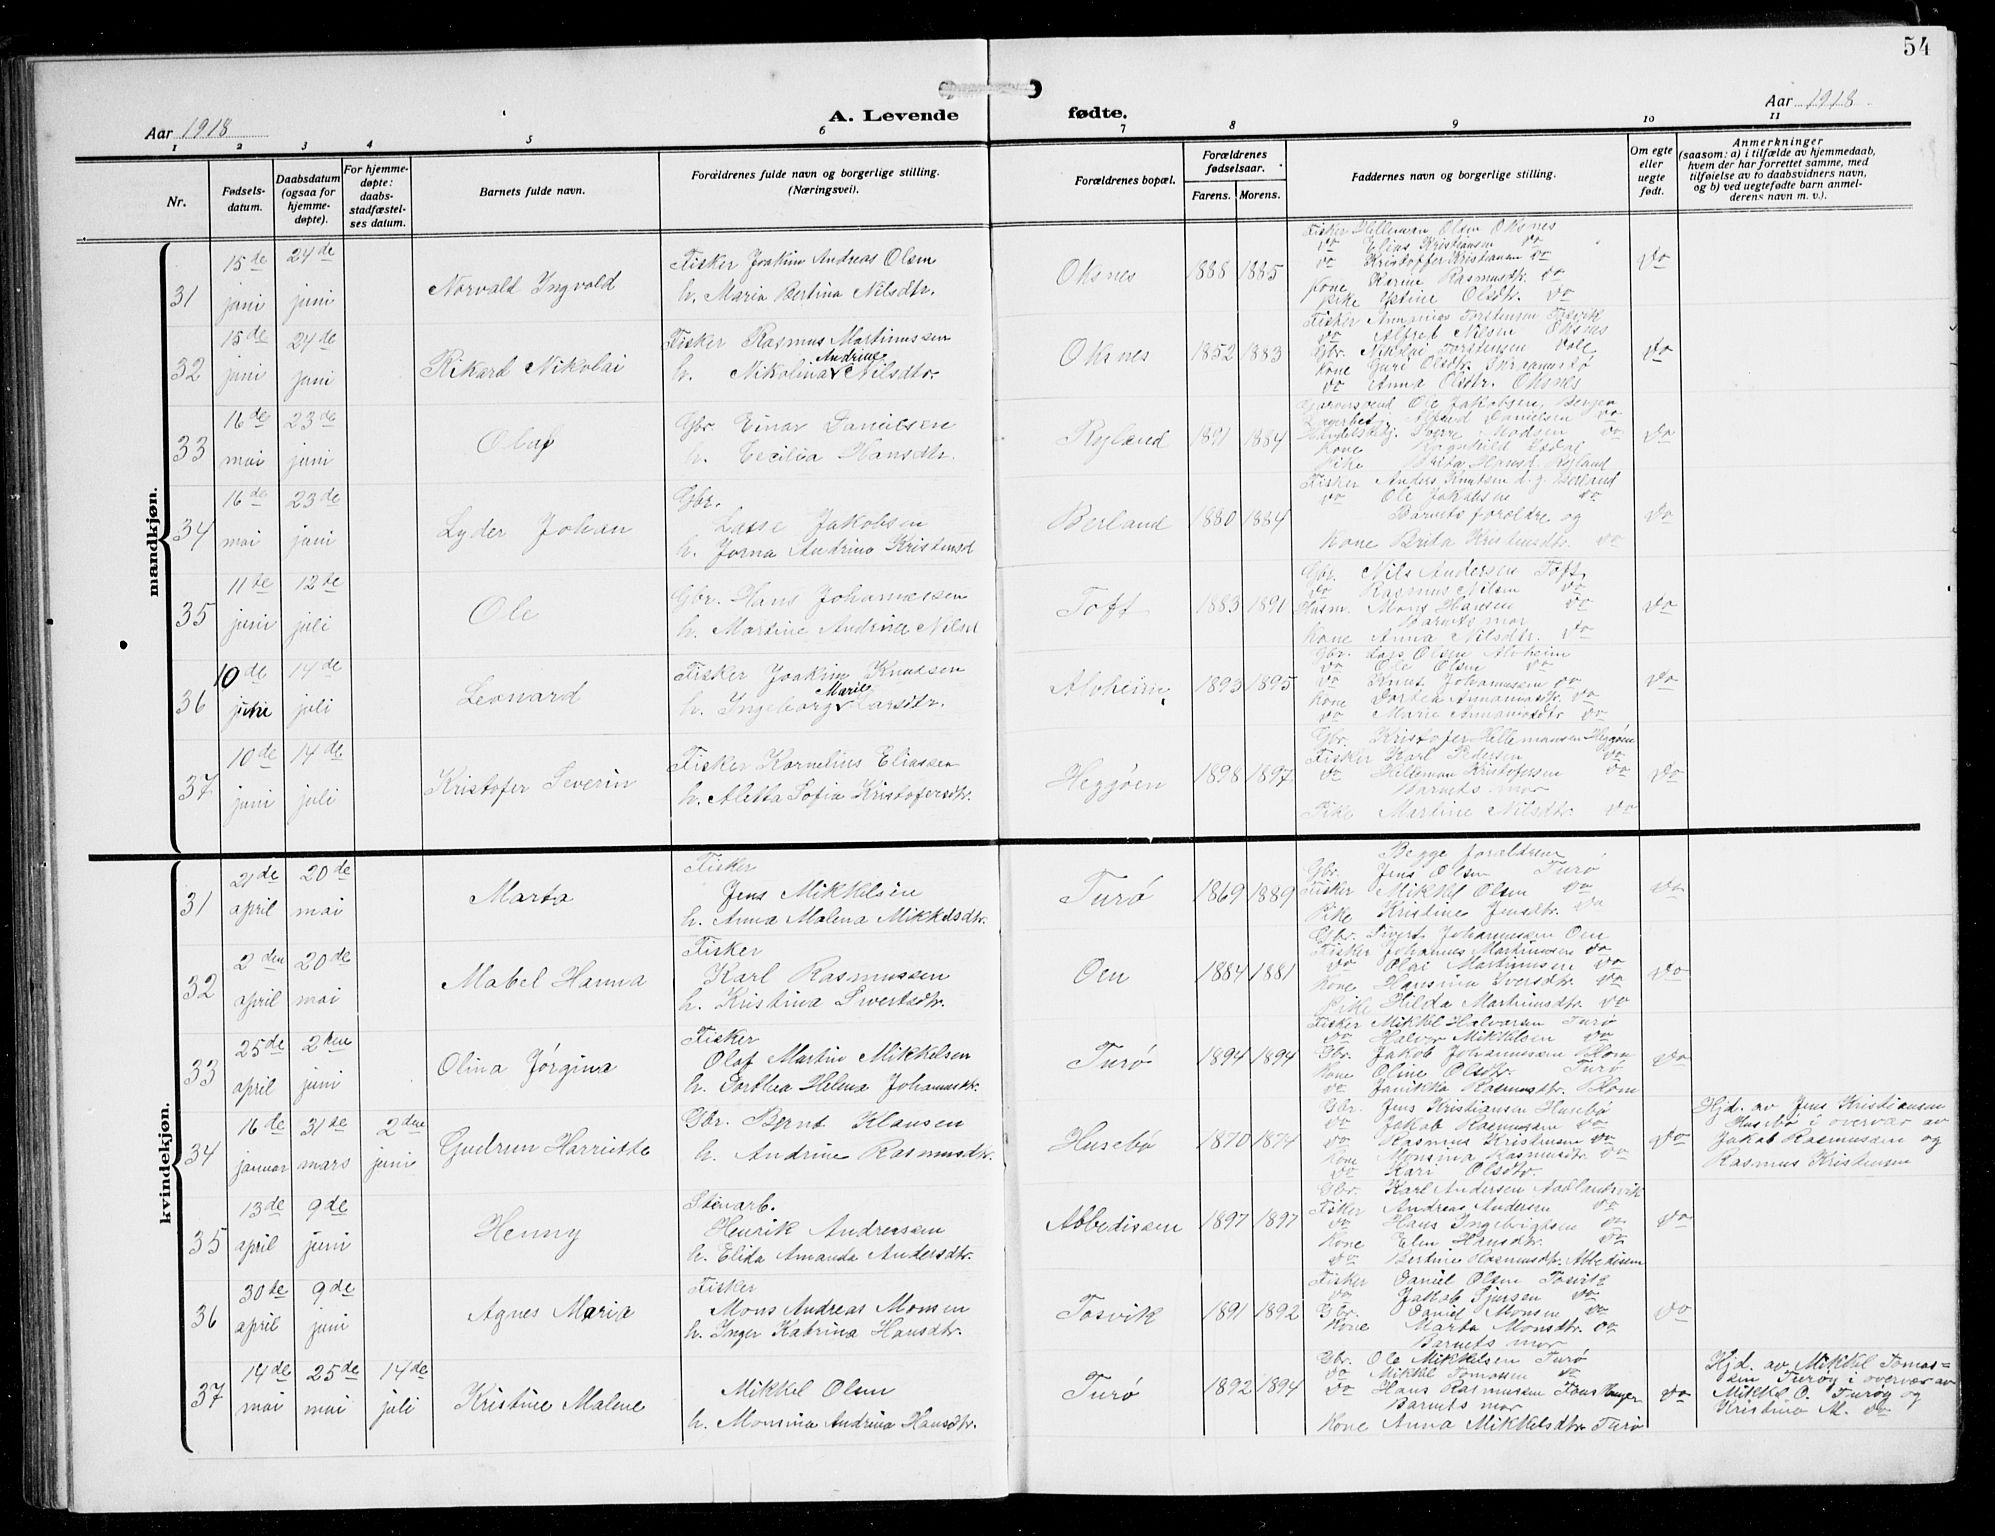 54
Aar 1918 A. Levende fødte. Aar 1918
1 2 3 4 5 6 7 8 9 10 11
Nr.
Fødsels-
datum.
Daabsdatum
(ogsaa for
hjemme-
døpte).
For hjemme-
døpte:
daabs-
stadfæstel-
ses datum.
Barnets fulde navn.
Forældrenes fulde navn og borgerlige stilling.
(Næringsvei).
Forældrenes bopæl.
Forældrenes
fødselsaar.
Farens. Morens.
Faddernes navn og borgerlige stilling.
Om egte
eller
uegte
født.
Anmerkninger
(saasom: a) i tilfælde av hjemmedaab,
hvem der har forrettet samme, med
tilføielse av to daabsvidners navn,
og b) ved uegtefødte barn anmel-
derens navn m. v.).
mandkjøn.
31
15de juni
24de juni
Norvald Ingvald
Fisker Joakim Andreas Olsen
h. Maria Bertina Nilsdtr.
Oksnes
1888 1885
Fisker Hilleman Olsen Oksnes
do Elias Kristiansen do
do Kristoffer Kristiansen do
Kone Karine Rasmusdtr. do
Pike Olsdtr. do
do
32
15de juni
24de juni
Rikard Nikolai
Fisker Rasmus Martinussen
h. Nikolina Andrine Nilsdtr.
Oksnes
1852 1883
Fisker Ananias Torstensen Tosvik
do Alfred Nilsen Oksnes
Gbr. Nikolai Torstensen
Kone Guri Olsdtr.
do Anna Olsdtr. Oksnes
do
33
16de mai
23de juni
Olaf
Gbr. Einar Danielsen
h. Cecilia Hansdtr.
Rylland
1891 1884
Ole Jakobsen, Bergen
Danielsen do
Sverre Madsen do
Kone Ragnhild
Pike Brita Hansd.
do
34
16de mai
23de juni
Lyder Johan
Gbr.
Lasse Jakobsen
h. Jorna Andrina Kristensd
Berland
1880 1884
Fisker Anders Knutsen d. y. Berland
do Ole Jakobsen do
Barnets forældre og
Kone Brita Kristensdtr. do
do
35
11te juni
12te juli
Ole
Gbr. Hans Johannessen
h. Martine Andrina Nilsd
Toft
1883 1891
Gbr. Nils Andersen Toft
do Rasmus Nilsen do
Husm. Mons Hansen do
Barnets mor
Kone Anna Nilsdtr. do
do
36
10de juni
14de juli
Leonard
Fisker Joakim Knutsen
h. Ingeborg Marie Larsdtr.
Alvheim
1893 1895
Gbr. Lars Olsen Alvheim
do Ole Olsen do
do Knut Johannessen do
Kone Dortea Annaniasdtr. do
do Marie Annaniasdtr do
do
37
10de juni
14de juli
Kristofer Severin
Fisker Kornelius Eliassen
h. Aletta Sofia Kristofersdtr.
Heggøen
1898 1897
Gbr. Kristofer Hillemansen Heggøen
Fisker Karl Pedersen do
do Hilleman Kristofersen do
Barnets mor
Pike Martine Nilsdtr. do
do
kvindekjøn.
31
21de april
20de mai
Marta
Fisker
Jens Mikkelsen
h. Anna Malena Mikkelsdtr.
Turø
1869 1889
Begge forældrene
Gbr. Jens Olsen Turø
Fisker Mikkel Olsen do
Pike Kristine Jensdtr. do
do
32
2den april
20de mai
Mabel Hanna
Fisker
Karl Rasmussen
h. Kristina Sivertsdtr.
Oen
1884 1881
Gbr. Sivert Johannessen Oen
Fisker Johannes Martinusen do
do Olai Martinusen do
Kone Hansina Iversdtr. do
Pike Hilda Martinusdtr. do
do
33
25de april
2den juni
Olina Jørgina
Fisker
Olaf Martin Mikkelsen
h. Dorthea Helena Johannesdtr.
Turø
1894 1894
Fisker Mikkel Halvorsen Turø
do Halvor Mikkelsen do
Gbr. Jakob Johannessen Blom
Kone Oline Olsdtr. Turø
do Janikka Rasmusdtr. Blom
do
34
16de januar
31de mars
2den juni
Gudrun Harriette
Gbr. Bernt Klausen
h. Andrine Rasmusdtr.
Husebø
1870 1874
Gbr. Jens Kristiansen Husebø
do Jakob Rasmussen do
do Rasmus Kristensen do
Kone Monsina Rasmusdtr. do
do Kari Olsdtr.
do
Hjd. av Jens Kristiansen
Husebø i overvær av
Jakob Rasmussen og
Rasmus Kristensen
35
13de april
9de juni
Henny
Stenarb.
Henrik Andreassen
h. Elida Amanda Andersdtr.
Abbedissen
1897 1897
Gbr. Karl Andersen Aadlandsvik
Fisker Andreas Andersen do
do Hans Ingebrigtsen do
Kone Elen Hansdtr. do
do Bertine Rasmusdtr. Abbedisen
do
36
30te april
9de juni
Agnes Maria
Fisker
Mons Andreas Monsen
h. Inger Katrina Hansdtr.
Tosvik
1891 1892
Fisker Daniel Olsen Tosvik
do Jakob Sjursen do
Gbr. Daniel Monsen do
Kone Marta Monsdtr. do
Barnets mor
do
37
14de mai
25de mai
14de juli
Kristine Malene
Mikkel Olsen
h. Monsina Andrina Hansdtr.
Turø
1892 1894
Gbr. Ole Mikkelsen Turø
do Mikkel Tomassen do
do Hans Rasmussen
Barnets mor
Kone Anna Mikkelsdtr. Turø
do
Hjd. av Mikkel Tomas=
sen Turøy i overvær av
Mikkel O. Turøy og
Kristina M. do